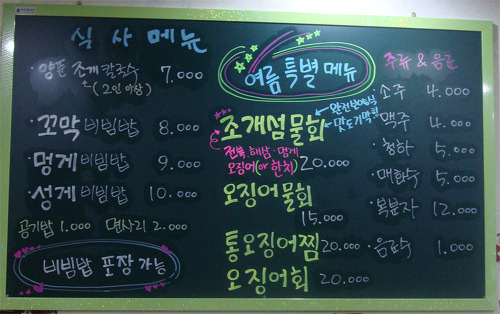 식사메뉴
양푼 조개칼국수 7.000
(2인 이상)
꼬막비빔밥 8.000
멍게비빔밥 9.000
성게비빔밥 10.000
공기밥 1.000 면사리 2.000
비빔밥 포장 가능
여름특별메뉴
조개섬물회
전복, 해삼·멍게
오징어(or 한치) 20.000
오징어물회
15.000
통오징어찜 20.000
오징어회 20.000
주류 & 음료
소주 4.000
맥주 4.000
청하 5.000
매화수 5.000
복분자 12.000
음료수 1.000